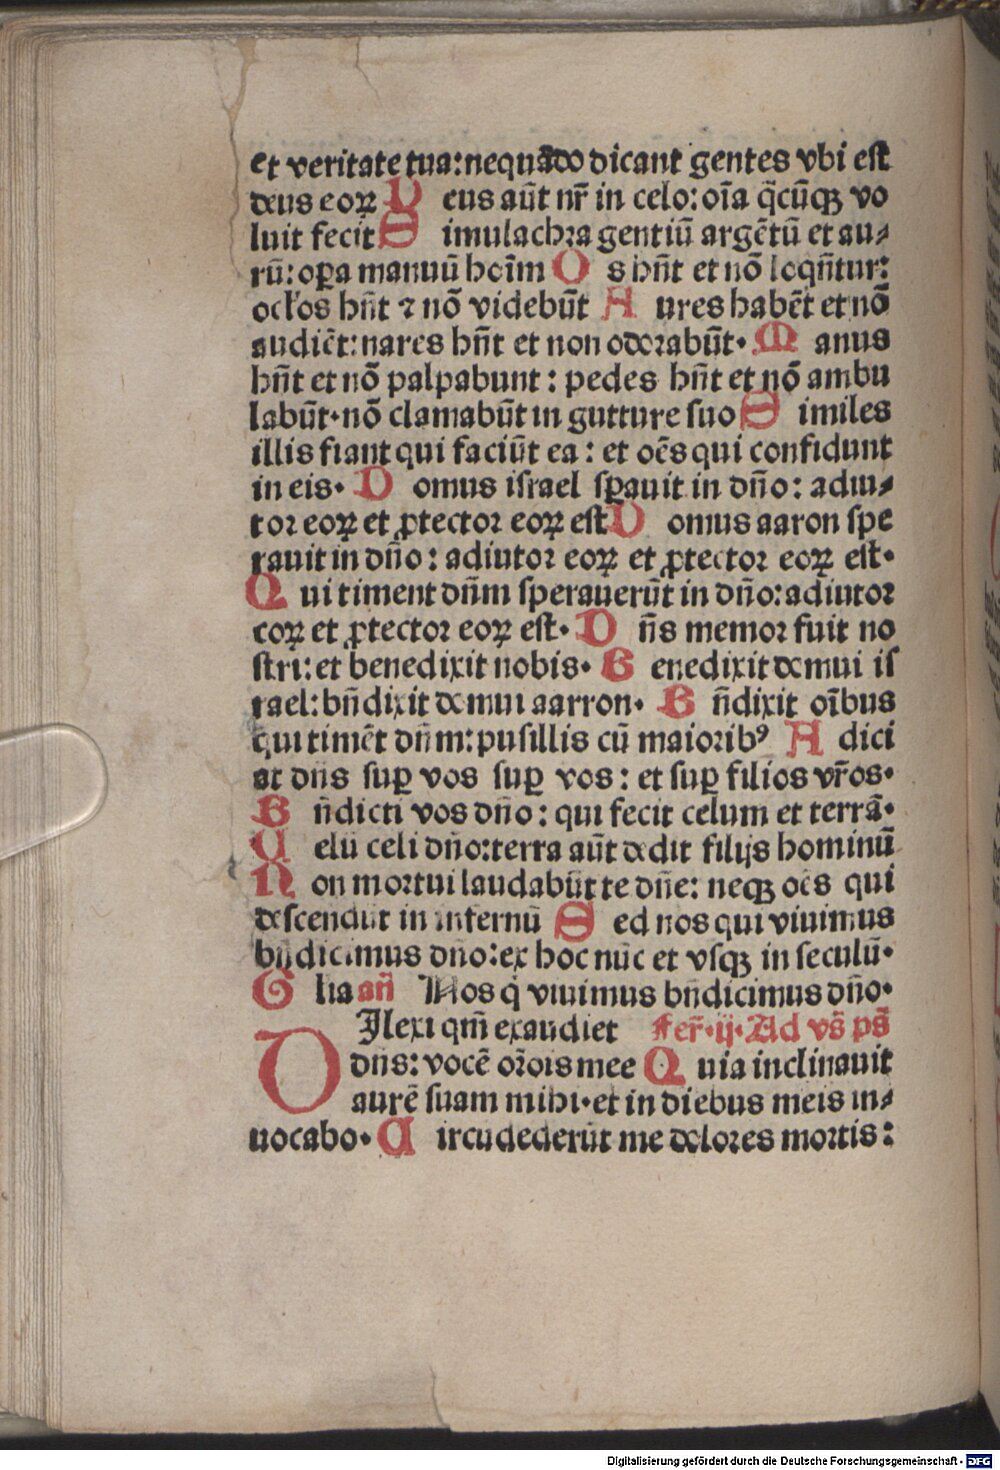 et veritate tua: nequādo dicant gentes vbi est
deus eoꝝ Deus aūt nr̄ in celo: oīa q̄cūqꝫ vo
luit fecit Simulachra gentiū argētū et au⸗
rū: oꝑa manuū hoīm Os hn̄t et nō loqn̄tur:
ocłos hn̄t ⁊ nō videbūt Aures habēt et nō
audiēt: nares hn̄t et non odorabūt· Manus
hn̄t et nō palpabunt: pedes hn̄t et nō ambu
labūt· nō clamabūt in gutture suo Similes
illis fiant qui faciūt ea: et oēs qui confidunt
in eis· Domus israel sꝑauit in dn̄o: adiu⸗
tor eoꝝ et ꝓtector eoꝝ est Domus aaron spe
rauit in dn̄o: adiutor eoꝝ et ꝓtector eoꝝ est·
Qui timent dn̄m sperauerūt in dn̄o: adiutor
eoꝝ et ꝓtector eoꝝ est· Dn̄s memor fuit no
stri: et benedixit nobis· Benedixit domui is
rael: bn̄dixit domui aarron· Bn̄dixit oībus
qui timēt dn̄m: pusillis cū maioribꝰ Adici
at dn̄s suꝑ vos suꝑ vos: et suꝑ filios vr̄os·
Bn̄dicti vos dn̄o: qui fecit celum et terrā·
Celū celi dn̄o: terra aūt dedit filijs hominū
Non mortui laudabūt te dn̄e: neqꝫ oēs qui
descendūt in infernū Sed nos qui viuimus
bn̄dicimus dn̄o: ex hoc nūc et vsqꝫ in seculū·
Glia an̄ Nos q̇ viuimus bn̄dicimus dn̄o·
DIlexi qm̄ exaudiet fer̄·ij· Ad vs̄ ps̄
dn̄s: vocē or̄ois mee Quia inclinauit
aurē suam mihi· et in diebus meis in⸗
uocabo· Circūdederūt me dolores mortis:
Digitalisierung gefördert durch die Deutsche Forschungsgemeinschaft - DFG